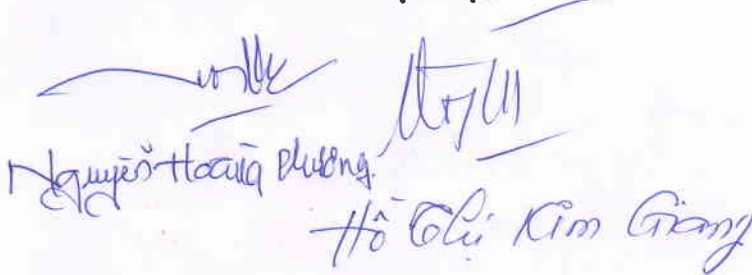 Nguyễn Hoàng Phương.
Hồ Thị Kim Giang